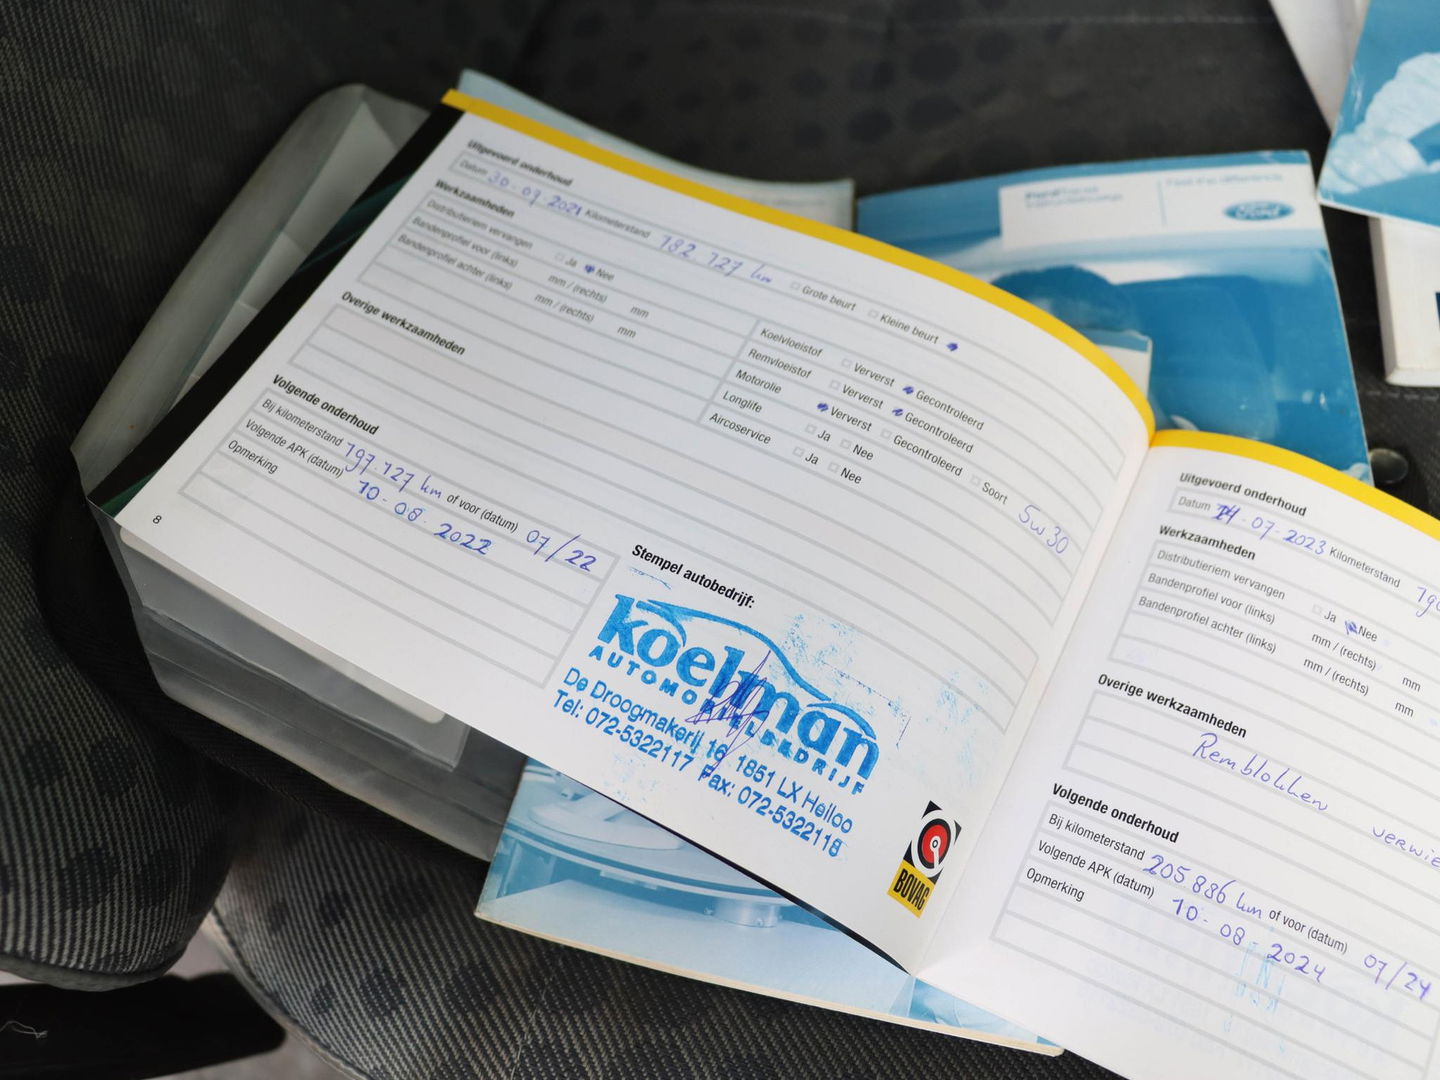 Uitgevoerd onderhoud
Datum 30-07-2021 Kilometerstand 182 127 km Grote beurt Kleine beurt
Werkzaamheden
Distributieriem vervangen Ja Nee
Bandenprofiel voor (links) mm / (rechts) mm
Bandenprofiel achter (links) mm / (rechts) mm
Koelvloeistof Ververst Gecontroleerd
Remvloeistof Ververst Gecontroleerd
Motorolie Ververst Gecontroleerd Soort 5w30
Longlife Ja Nee
Aircoservice Ja Nee
Overige werkzaamheden
Volgende onderhoud
Bij kilometerstand 197.127 km of voor (datum) 07/22
Volgende APK (datum) 10-08-2022
Opmerking
8
Stempel autobedrijf:
koelman
AUTOMOBIELBEDRIJF
De Droogmakerij 16 1851 LX Heiloo
Tel: 072-5322117 Fax: 072-5322118
BOVAG
Uitgevoerd onderhoud
Datum 14-07-2023 Kilometerstand
Werkzaamheden
Distributieriem vervangen Ja Nee
Bandenprofiel voor (links) mm / (rechts) mm
Bandenprofiel achter (links) mm / (rechts) mm
Overige werkzaamheden
Remblokken
Volgende onderhoud
Bij kilometerstand 205.886 km of voor (datum) 07/24
Volgende APK (datum) 10-08-2024
Opmerking
Feel the difference
Ford